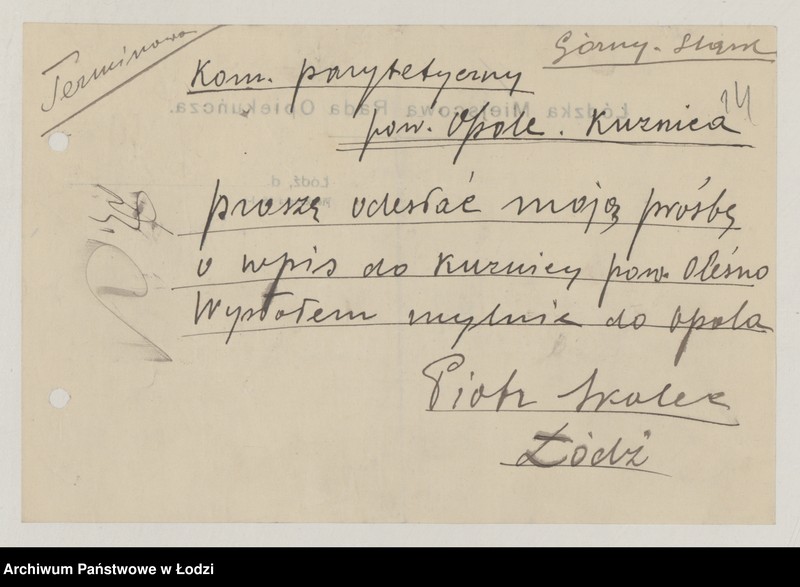 Terminowa
Górny-Śląsk
14
Kom. parytetyczny
pow. Opole. Kuznica
Łódzka Miejscowa Rada Opiekuńcza.
Łódź, d.
proszę odesłać moją prośbę
o wpis do Kuznicy pow. Oleśno
Wysłołem mylnie do Opola
Piotr Skolec
Łódź
Archiwum Państwowe w Łodzi